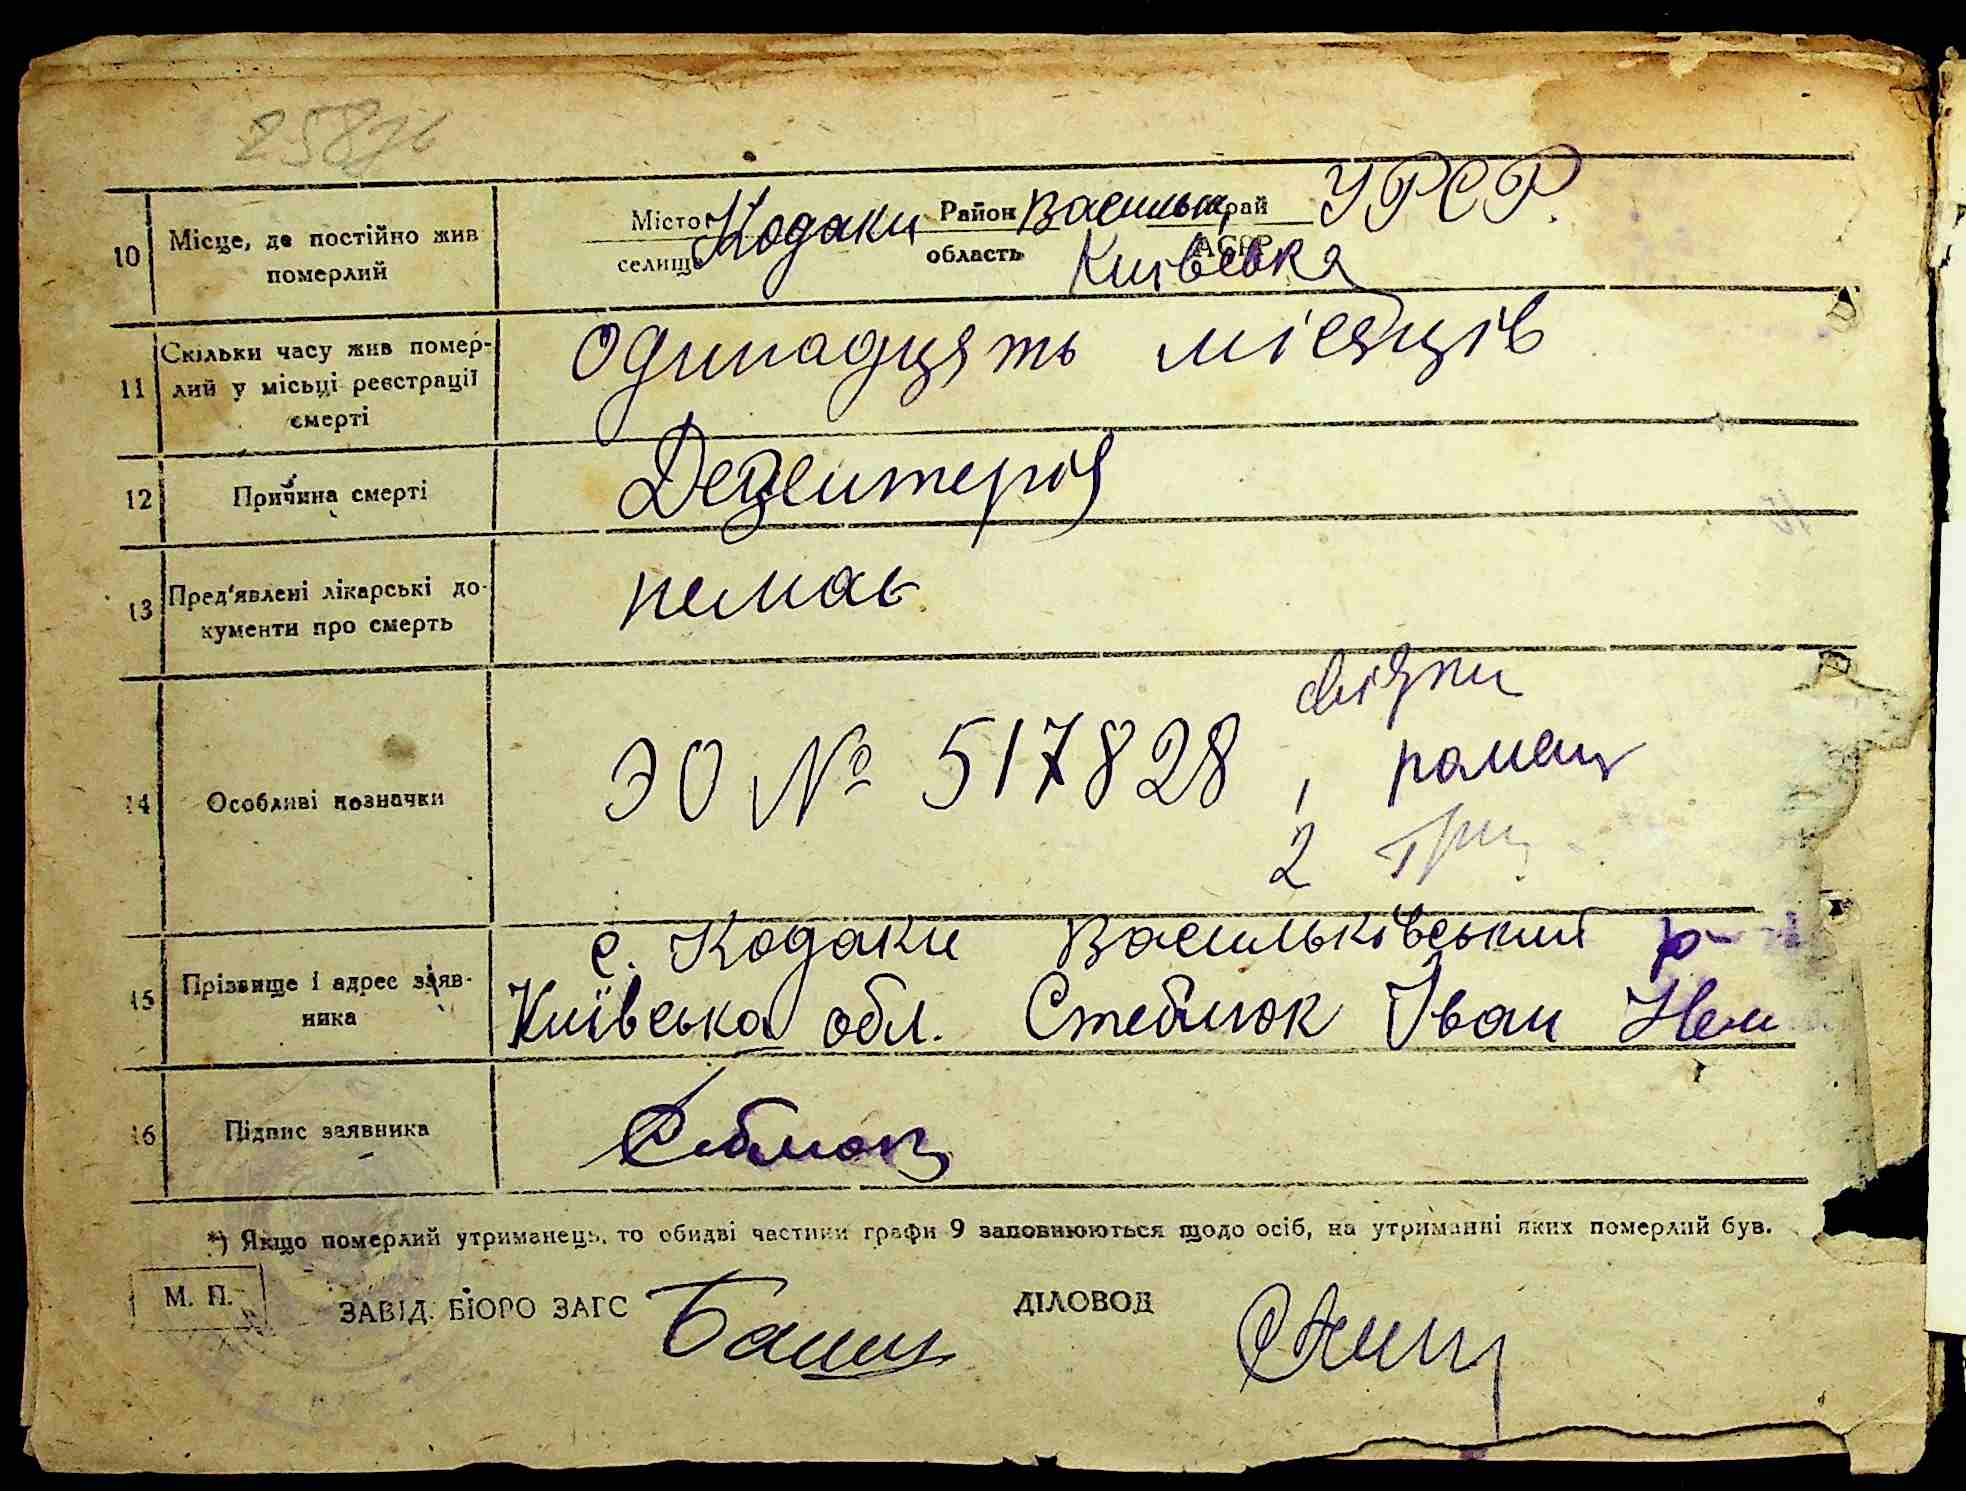 10 Місце, де постійно жив померлий
Місто Кодаки Район Васильк. край УРСР.
селище область Київська АСРР
11 Скільки часу жив помер-
лий у місьці реєстрації
смерті
одинадцять місяців
12 Причина смерті
Дезентерія
13 Пред'явлені лікарські до-
кументи про смерть
немає
14 Особливі позначки
ЭО № 517828,
2
15 Прізвище і адрес заяв-
ника
с. Кодаки Васильківський р-
Київська обл. Стеблюк Іван
16 Підпис заявника
*) Якщо померлий утриманець, то обидві частини графи 9 заповнюються щодо осіб, на утриманні яких померлий був.
М. П.
ЗАВІД. БЮРО ЗАГС
ДІЛОВОД